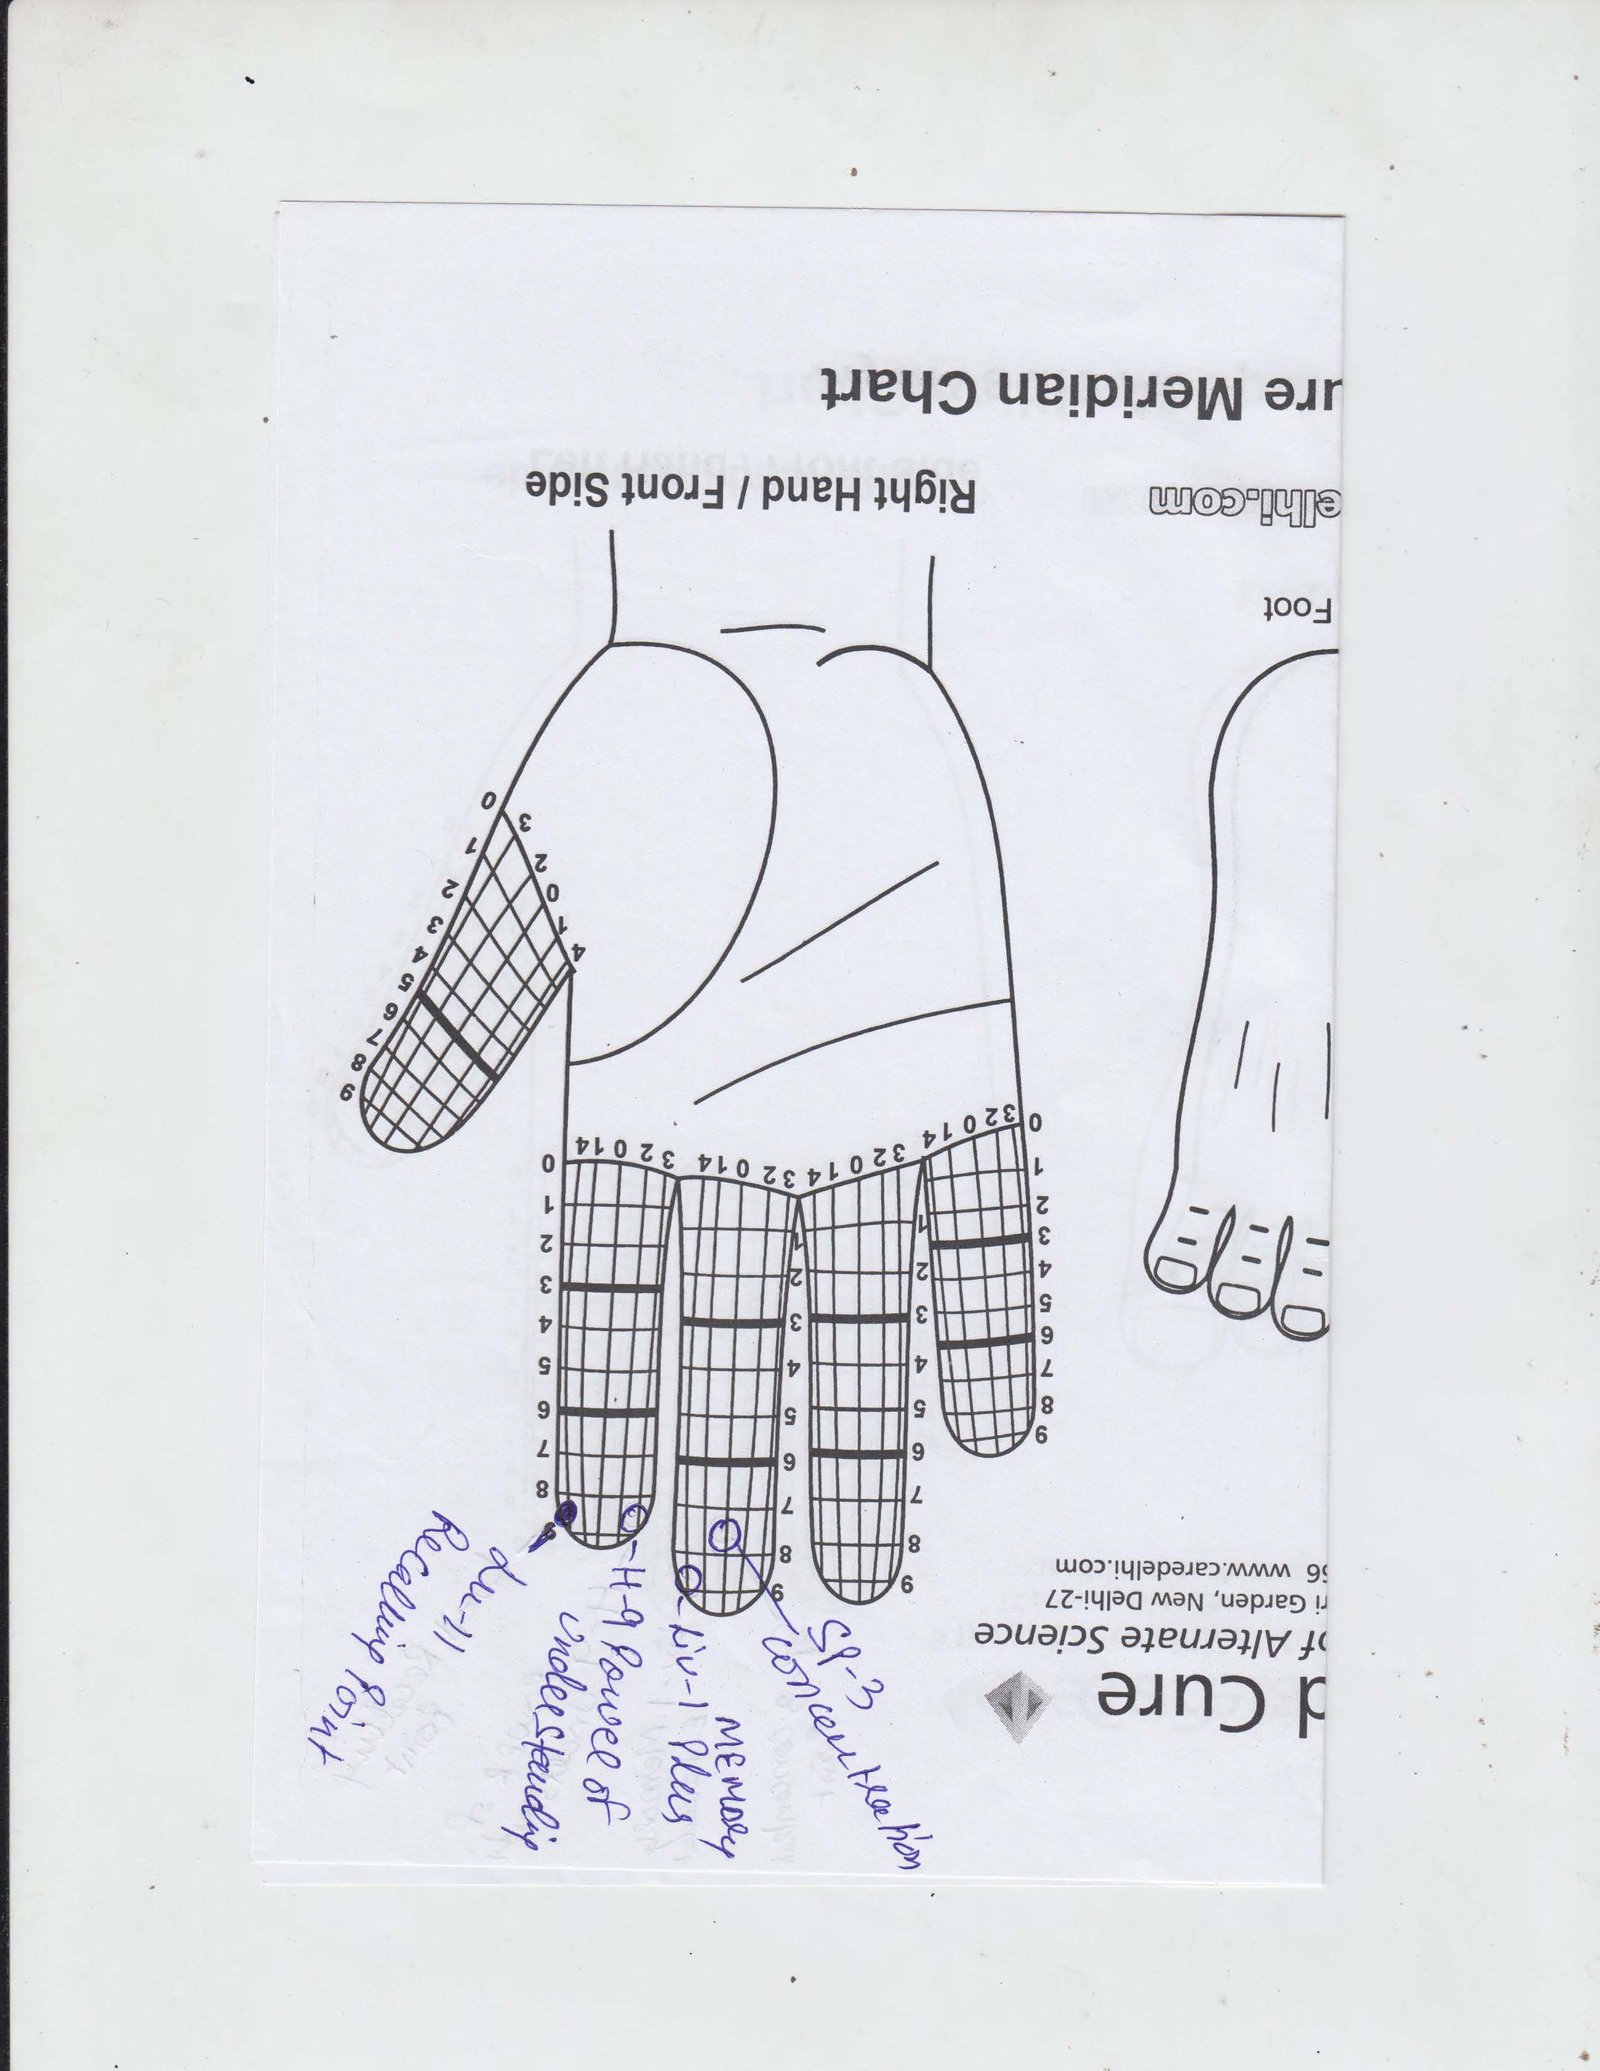 ure Meridian Chart
elhi.com
Right Hand / Front Side
Foot
0
1
2
3
4
5
6
7
8
9
3
2
0
1
4
3 2 0 1 4
3 2 0 1 4
3 2 0 1 4
3 2 0 1 4
0
1
2
3
4
5
6
7
8
9
1
2
3
4
5
6
7
8
9
1
2
3
4
5
6
7
8
9
0
1
2
3
4
5
6
7
8
9
Lu-11
Recalling Point
H-9 Power of
Understanding
Liv-1 Plus
MEMORY
SP-3
Concentration
d Cure
of Alternate Science
ri Garden, New Delhi-27
66 www.caredelhi.com